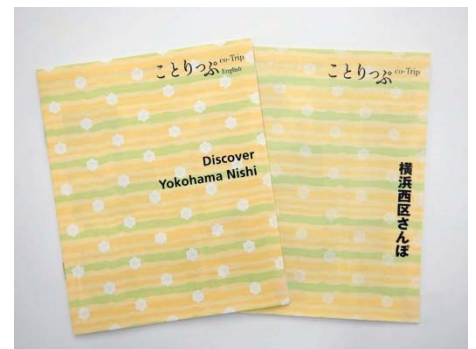 ことりっぷ co-Trip
English
Discover
Yokohama Nishi
ことりっぷ co-Trip
横浜西区さんぽ